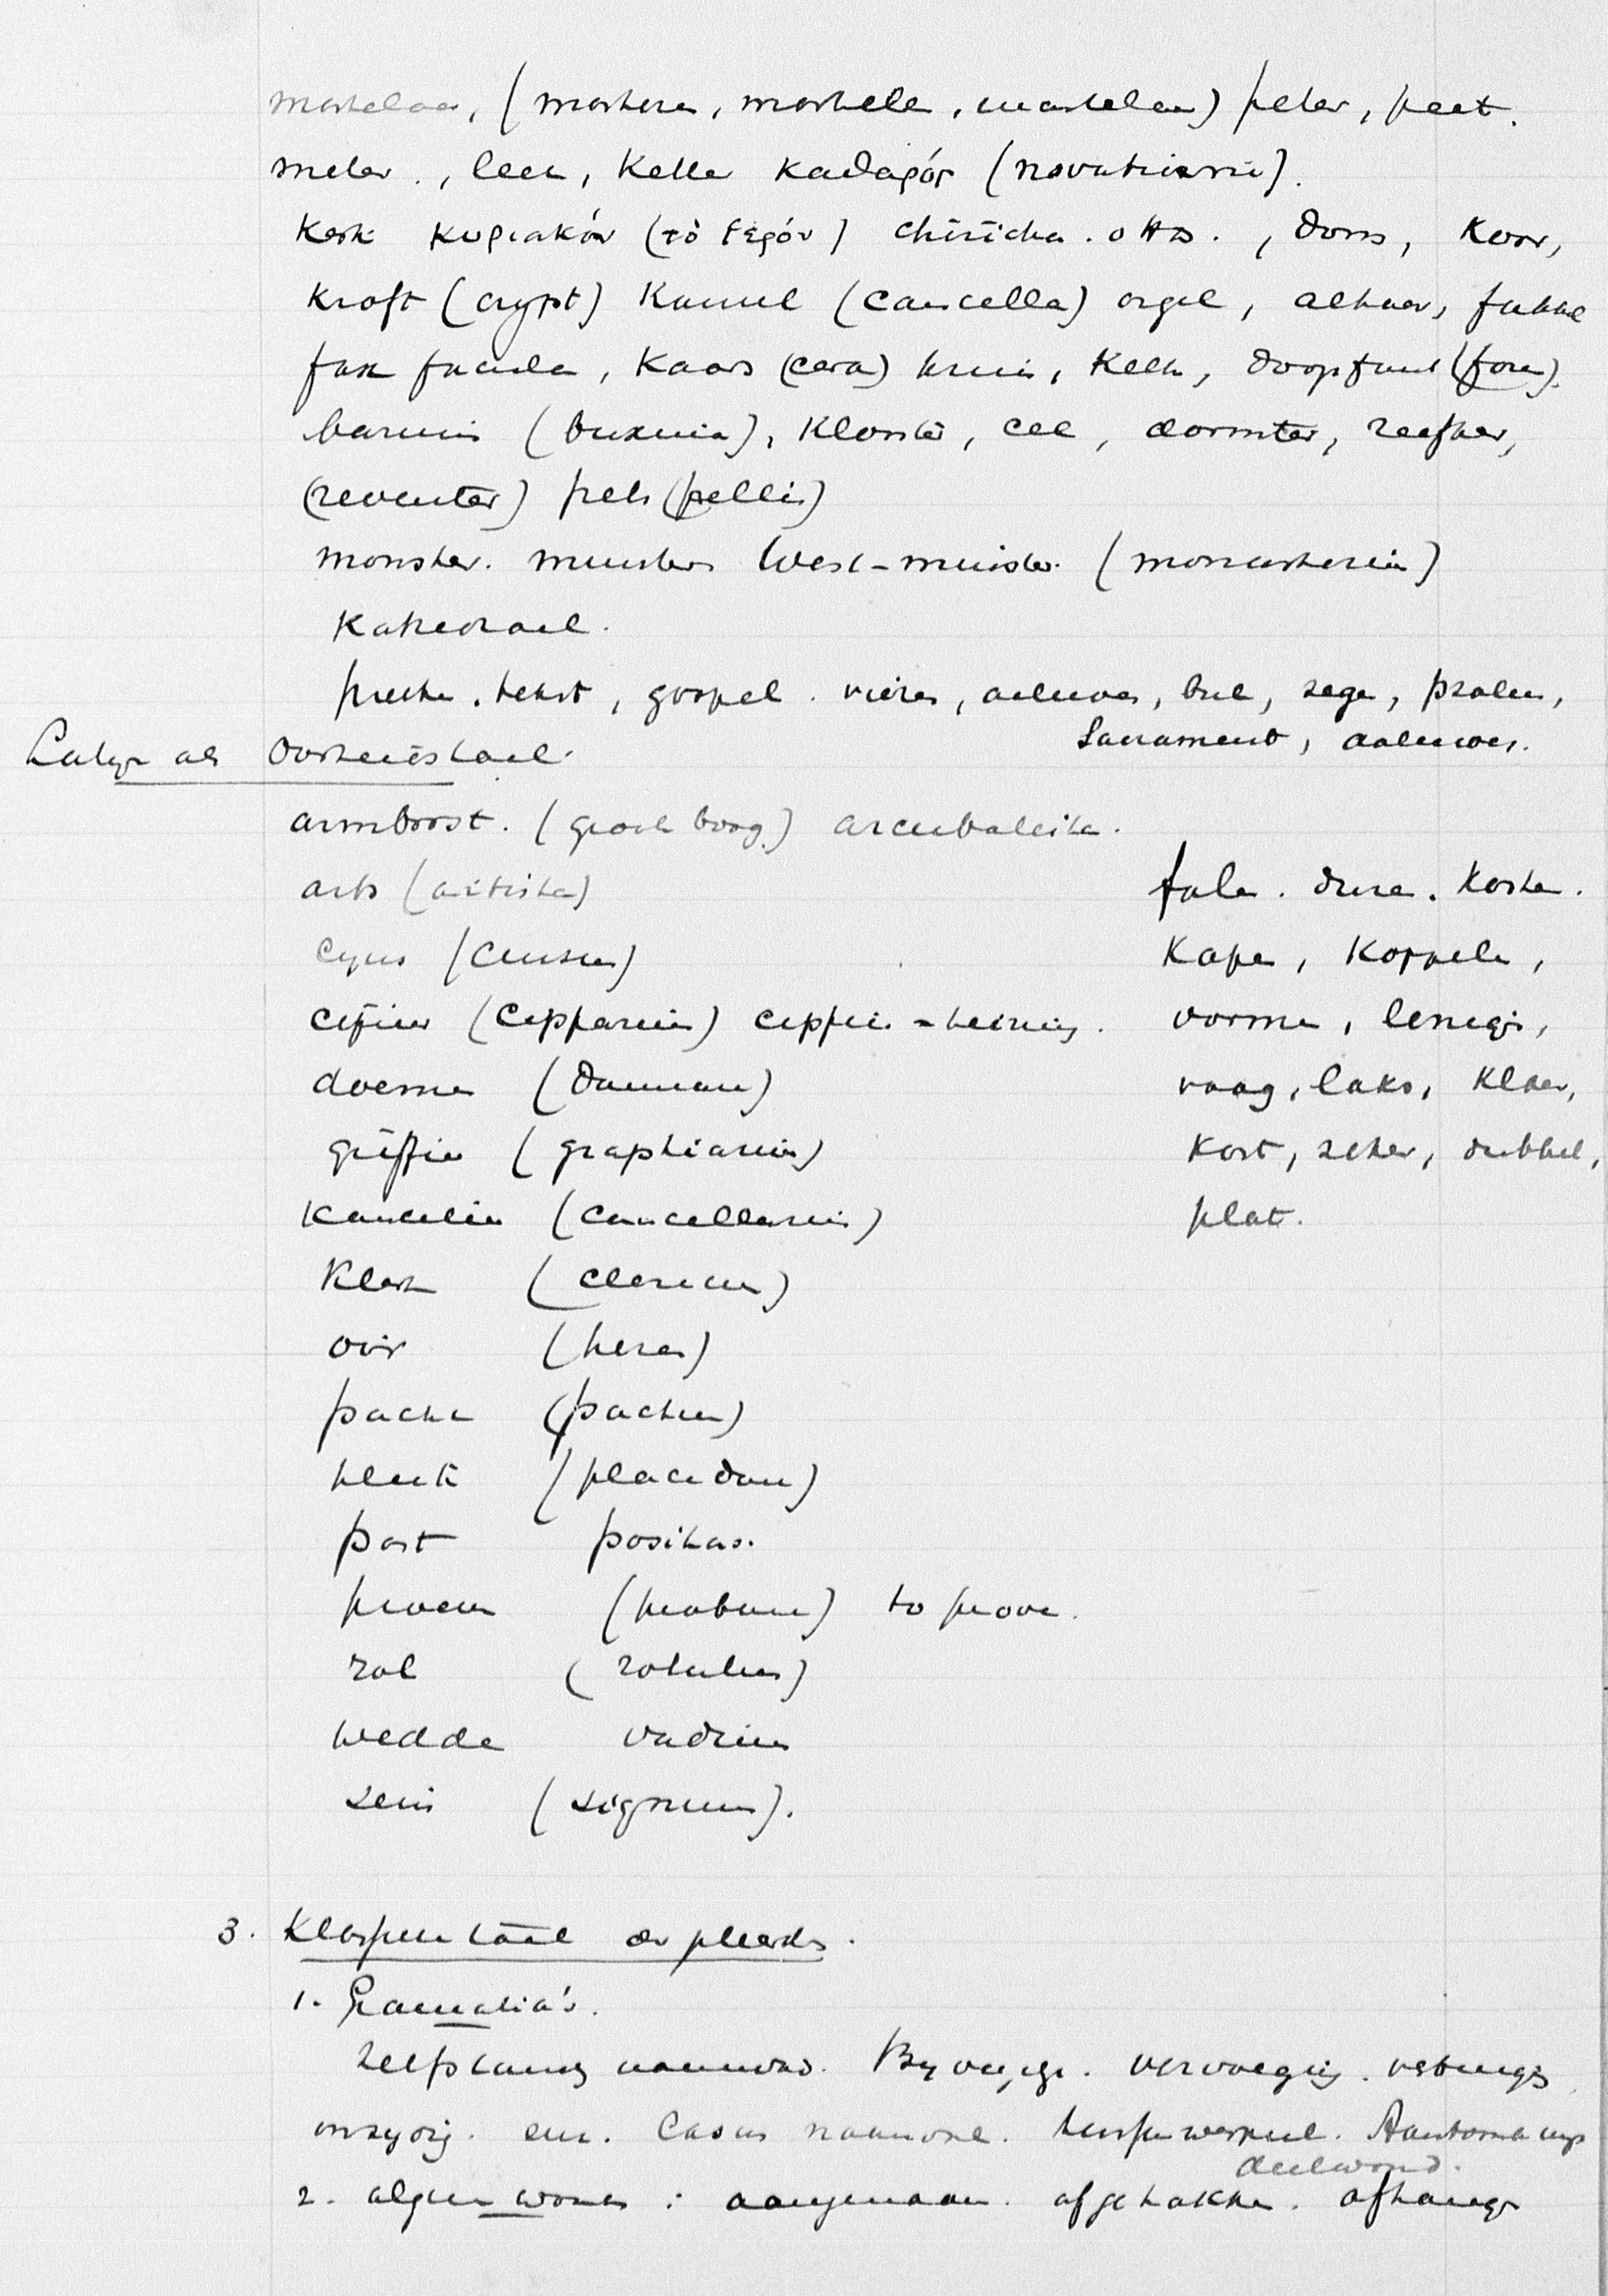 martelaar, (martern, martelen) peter, peet.
meter., leek, Ketter καθαρός (novatiani).
Kerk κυριακόν (τὸ ἱερόν) chiricha. otto., dom, Koor,
Kroft (crypt) Kansel (cancella) orgel, altaar, fakkel
fax facula, Kaars (cera) kruis, Kelk, doopfont (fons).
(buxuia), Klooster, cel, dormter, reefter,
(reventer) pels (pellis)
monster. munster West-minster. (monasterium)
Kathedraal.
preeken. tekst, gospel. vieren, aalmoes, bul, zegen, psalm,
Sacrament, aalmoes.
Latijn als Oorkondetaal.
armborst. (groote boog) arcubalista.
arts (artista)
cyns (census)
cipier (cipparius) cippus = boeien.
doemen (damnare)
griffier (graphiarius)
Kanselier (cancellarius)
Klerk (clericus)
oir (heres)
pacht (pactum)
pleit (placidum)
post positus.
proeven (probare) to prove.
rol (rotulus)
wedde vadium
sein (signum).
falen. duren. Kosten.
Kapen, Koppelen,
vormen, lenigen,
vaag, laks, Klaar,
Kort, zeker, dubbel,
plat.
3. Kloostertaal der geleerden.
1. Grammatica's.
Zelfstandig naamwd. Byvoegl. vervoeging. verbuiging
onzydig. enz. Casus naamval. hulpwerkwd. Aantoonende wijs
deelwoord.
2. algem woorden: aangenaam. afgetrokken. afhangen